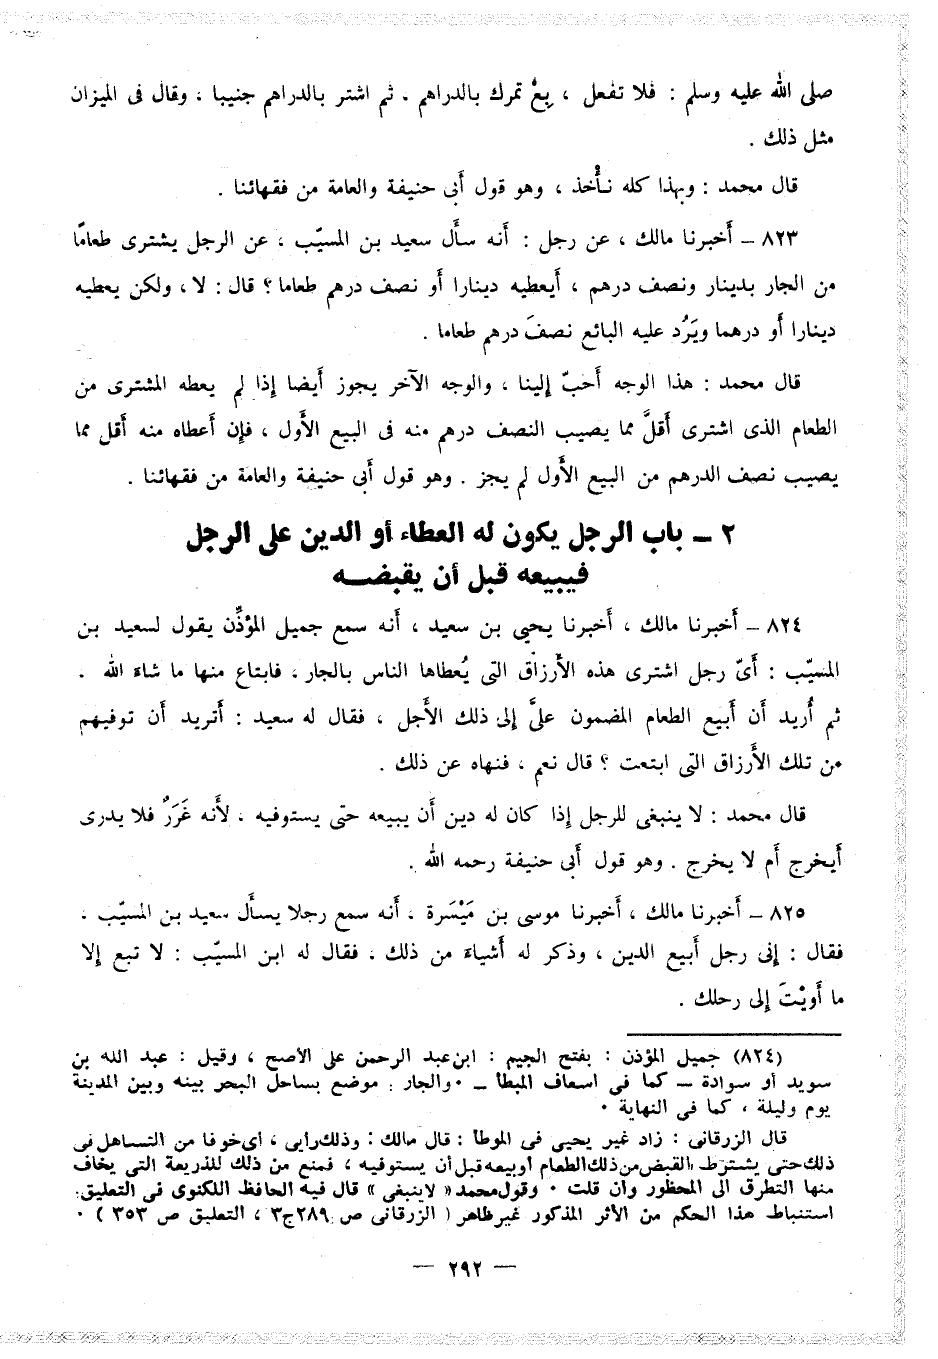 صلى الله عليه وسلم : فلا تفعل ، بِعْ تمرك بالدراهم . ثم اشتر بالدراهم جنيبا ، وقال فى الميزان
مثل ذلك .
قال محمد : وبهذا كله نأْخذ ، وهو قول أَبى حنيفة والعامة من فقهائنا .
٨٢٣ – أَخبرنا مالك ، عن رجل : أَنه سأَل سعيد بن المسيّب ، عن الرجل يشترى طعامًا
من الجار بدينار ونصف درهم ، أَيعطيه دينارا أَو نصف درهم طعاما ؟ قال : لا ، ولكن يعطيه
دينارا أَو درهما ويَرُد عليه البائع نصفَ درهم طعاما .
قال محمد : هذا الوجه أَحبّ إلينا ، والوجه الآخر يجوز أَيضا إذا لم يعطه المشترى من
الطعام الذى اشترى أَقلَّ مما يصيب النصف درهم منه فى البيع الأَول ، فإن أَعطاه منه أَقل مما
يصيب نصف الدرهم من البيع الأَول لم يجز . وهو قول أَبى حنيفة والعامة من فقهائنا .
٢ – باب الرجل يكون له العطاء أو الدين على الرجل
فيبيعه قبل أن يقبضـــه
٨٢٤ – أَخبرنا مالك ، أَخبرنا يحيى بن سعيد ، أَنه سمع جميل المؤذِّن يقول لسعيد بن
المسيّب : أَىّ رجل اشترى هذه الأَرزاق التى يُعطاها الناس بالجار ، فابتاع منها ما شاءَ الله .
ثم أُريد أَن أَبيع الطعام المضمون علىَّ إلى ذلك الأَجل ، فقال له سعيد : أَتريد أَن توفيهم
من تلك الأَرزاق التى ابتعت ؟ قال نعم ، فنهاه عن ذلك .
قال محمد : لا ينبغى للرجل إذا كان له دين أَن يبيعه حتى يستوفيه ، لأَنه غَرَرٌ فلا يدرى
أَيخرج أَم لا يخرج . وهو قول أَبى حنيفة رحمه الله .
٨٢٥ – أَخبرنا مالك ، أَخبرنا موسى بن مَيْسَرة ، أَنه سمع رجلا يسأَل سعيد بن المسيّب ،
فقال : إنى رجل أَبيع الدين ، وذكر له أَشياءَ من ذلك ، فقال له ابن المسيّب : لا تبع إلا
ما أَويْتَ إلى رحلك .
(٨٢٤) جميل المؤذن : بفتح الجيم : ابن عبد الرحمن على الأصح ، وقيل : عبد الله بن
سويد أو سوادة – كما فى اسعاف المبطأ – ٠ والجار : موضع بساحل البحر بينه وبين المدينة
يوم وليلة ، كما فى النهاية ٠
قال الزرقانى : زاد غير يحيى فى الموطأ : قال مالك : وذلك رايى ، اى خوفا من التساهل فى
ذلك حتى يشترط القبض من ذلك الطعام أو بيعه قبل أن يستوفيه ، فمنع من ذلك للذريعة التى يخاف
منها التطرق الى المحظور وان قلت ٠ وقول محمد « لا ينبغى » قال فيه الحافظ اللكنوى فى التعليق :
استنباط هذا الحكم من الأثر المذكور غير ظاهر ( الزرقانى ص ٢٨٩ ج٣ ، التعليق ص ٣٥٣ ) ٠
— ٢٩٢ —